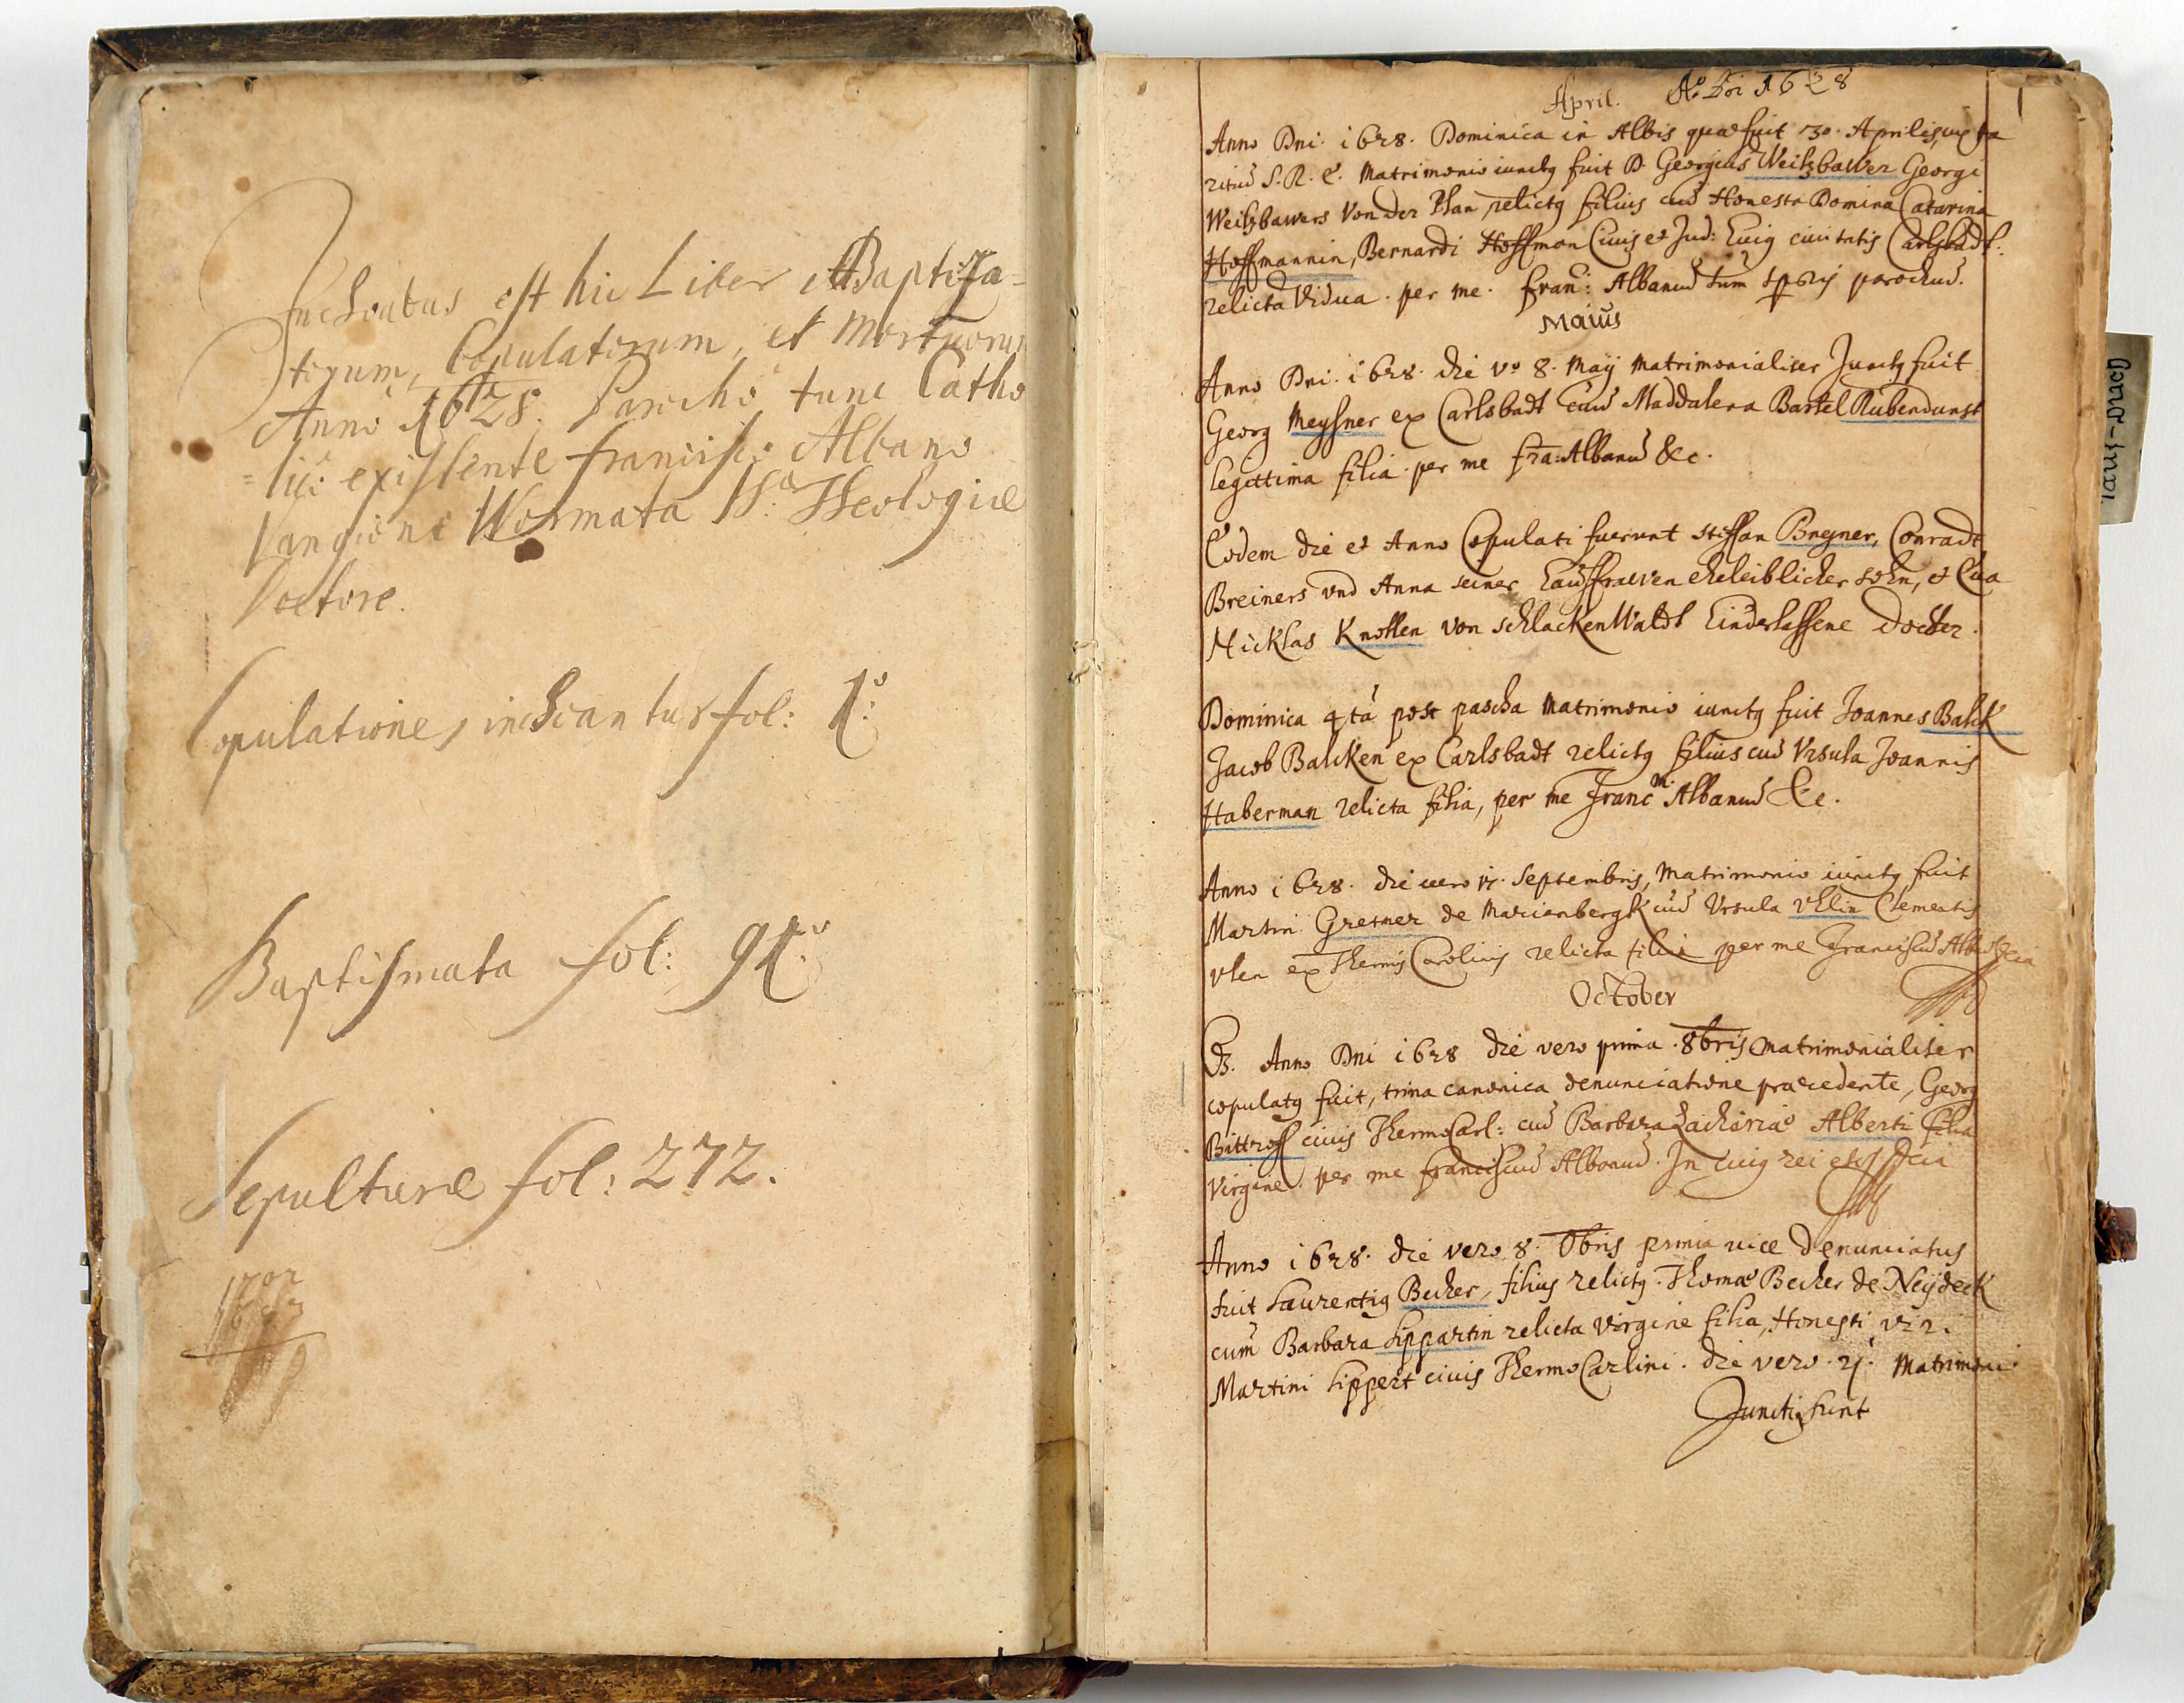 Inchoatus est hic Liber Baptiza-
torum, Copulatorum, et Mortuorum
Anno 1628. Parocho tunc Catho
=lico existente Francisco Albano
Vangione Wormata SS. Theologiæ
Doctore.
Copulationes inchoantur fol: 1º.
Baptismata fol: 91.º
Sepulturæ fol: 272.
April. Aº Dñi 1628
1
Anno Dni. 1628. Dominica in Albis quæ fuit 30. Aprilis, iuxta
ritũ S. R. E. Matrimonio iunctq fuit D. Georgius Weilzbawer Georgi
Weilzbawers Von der Plan relictq filius cũ Honesta Domina Catarina
Hoffmannin, Bernardi Hoffman Ciuis et Jud: Huiq ciuitatis Carlsbadt.
relicta Vidua. per me. Fran: Albanũ tum tpris parochũ.
Maiũs
Anno Dni. 1628. die vº 8. Maÿ Matrimonialiter Junctq fuit
Georg Meyssner ex Carlsbadt cũ Maddalena Bartel Rubendunst
legittima filia. per me Fra: Albanũ &c.
Eodem die et Anno Copulati fuerunt Steffan Breyner, Conradt
Breiners vnd Anna seiner Hausfrawen eheleiblicher sohn, et Eua
Nicklas Knollen von SchlackenWaldt Hinderlassene Dochter.
Dominica 4tâ post pascha Matrimonio iunctq fuit Joannes Balck
Jacob Balcken ex Carlsbadt relictq filius cũ Vrsula Joannis
Haberman relicta filia, per me Francm. Albanũ &c.
Anno 1628. die uero 17. Septembris, Matrimonio iunctq fuit
Martin Gresner de Marienbergk cũ Vrsula vhlin Clementis
vlen ex Thermis Carolinis relicta filia per me Franciscũ Alb
October
Anno Dni 1628 die vero prima. 8bris Matrimonialiter
copulatq fuit, trina canonica denunciatione præcedente, Georg
Bittroff ciuis ThermoCarl: cũ Barbara Zachariæ Alberti filia
Virgine. per me Franciscũ Albanũ. In cuiq rei
Anno 1628. die vero 8. 8bris prima uice denunciatus
fuit Laurentiq Becher, filius relictq. Thomæ Becher de Neÿdeck
cum̃ Barbara Lippartin relicta Virgine filia, Honesti viri
Martini Lippert ciuis ThermoCarlini. die vero. 21. Matrimonio
Juncti sunt